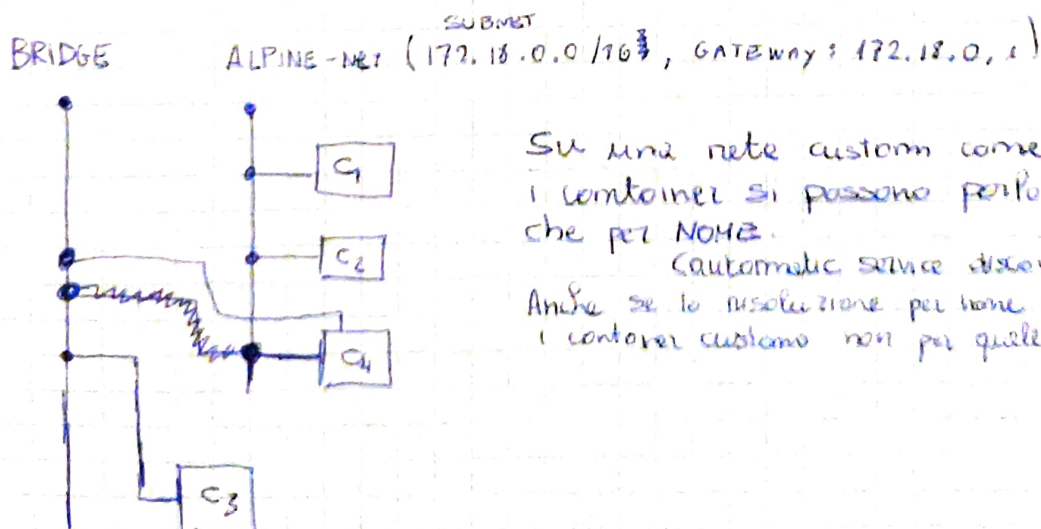 SUBNET
BRIDGE ALPINE-NET (172.18.0.0/16, GATEWAY: 172.18.0.1)
Su una rete custom come
i container si possono
che per NOME.
(automatic service
Anche se la risoluzione per nome
i container custom non per quelle
C1
C2
C4
C3